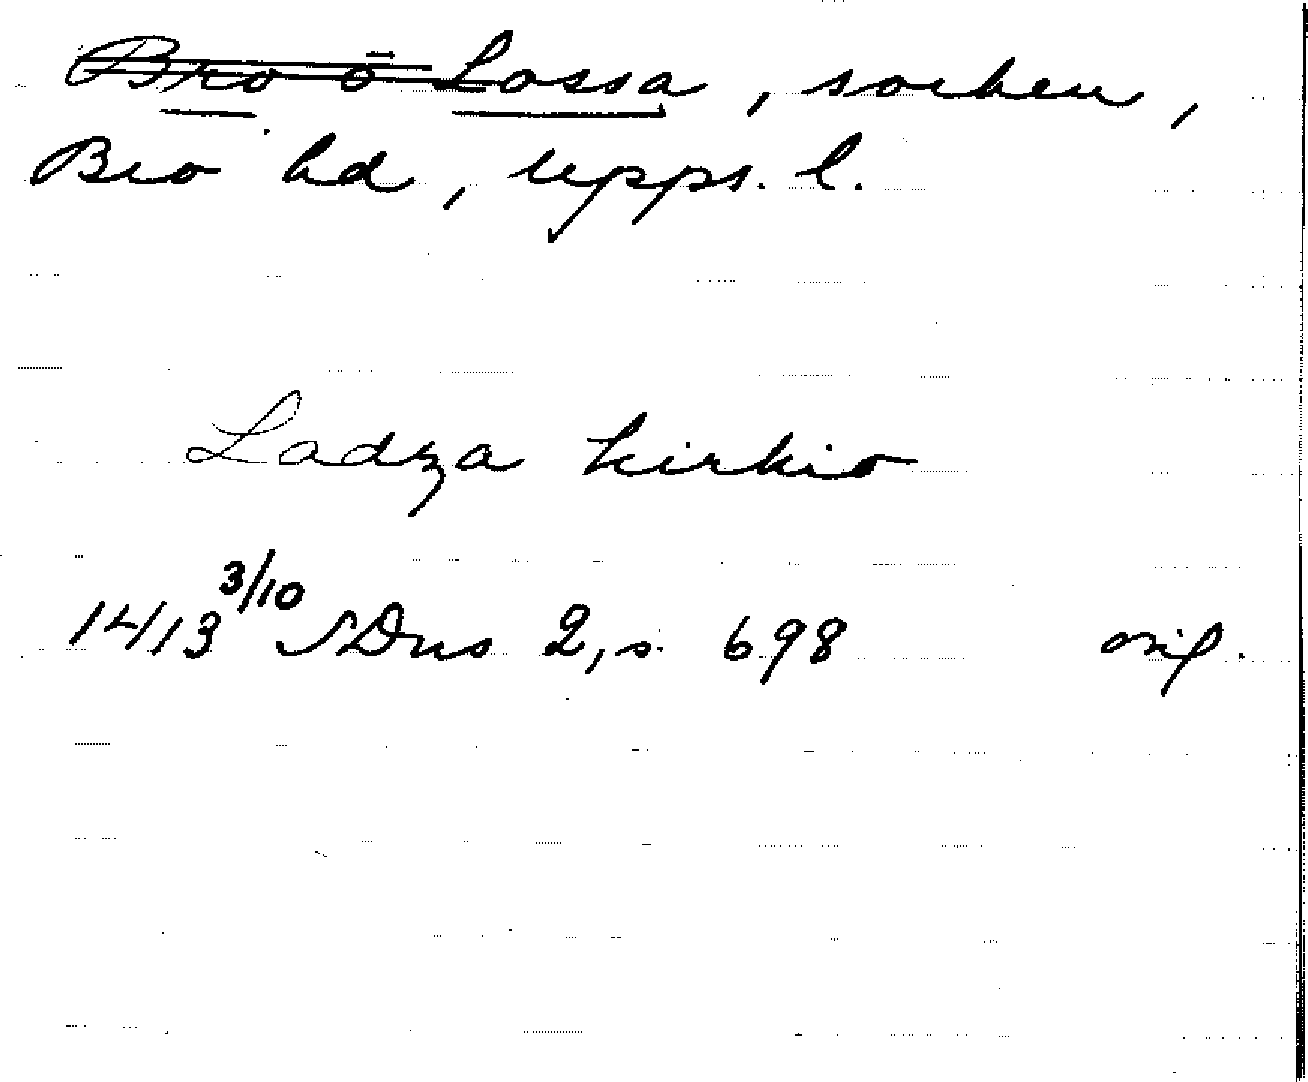 Bro o Lossa, socken,
Bro hd, Upps. l.
Ladza kirkio
1413 3/10 SDns 2, s. 698 orig.